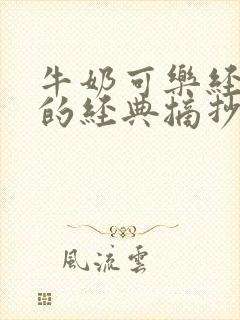 牛奶可樂經
的經典摘抄
風流雲